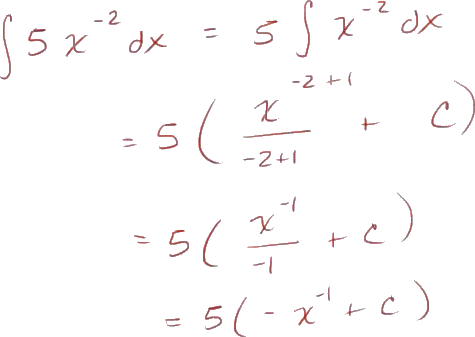 ∫ 5 x⁻² dx = 5 ∫ x⁻² dx
= 5 ( x⁻²⁺¹ / -2+1 + C )
= 5 ( x⁻¹ / -1 + C )
= 5 ( - x⁻¹ + C )